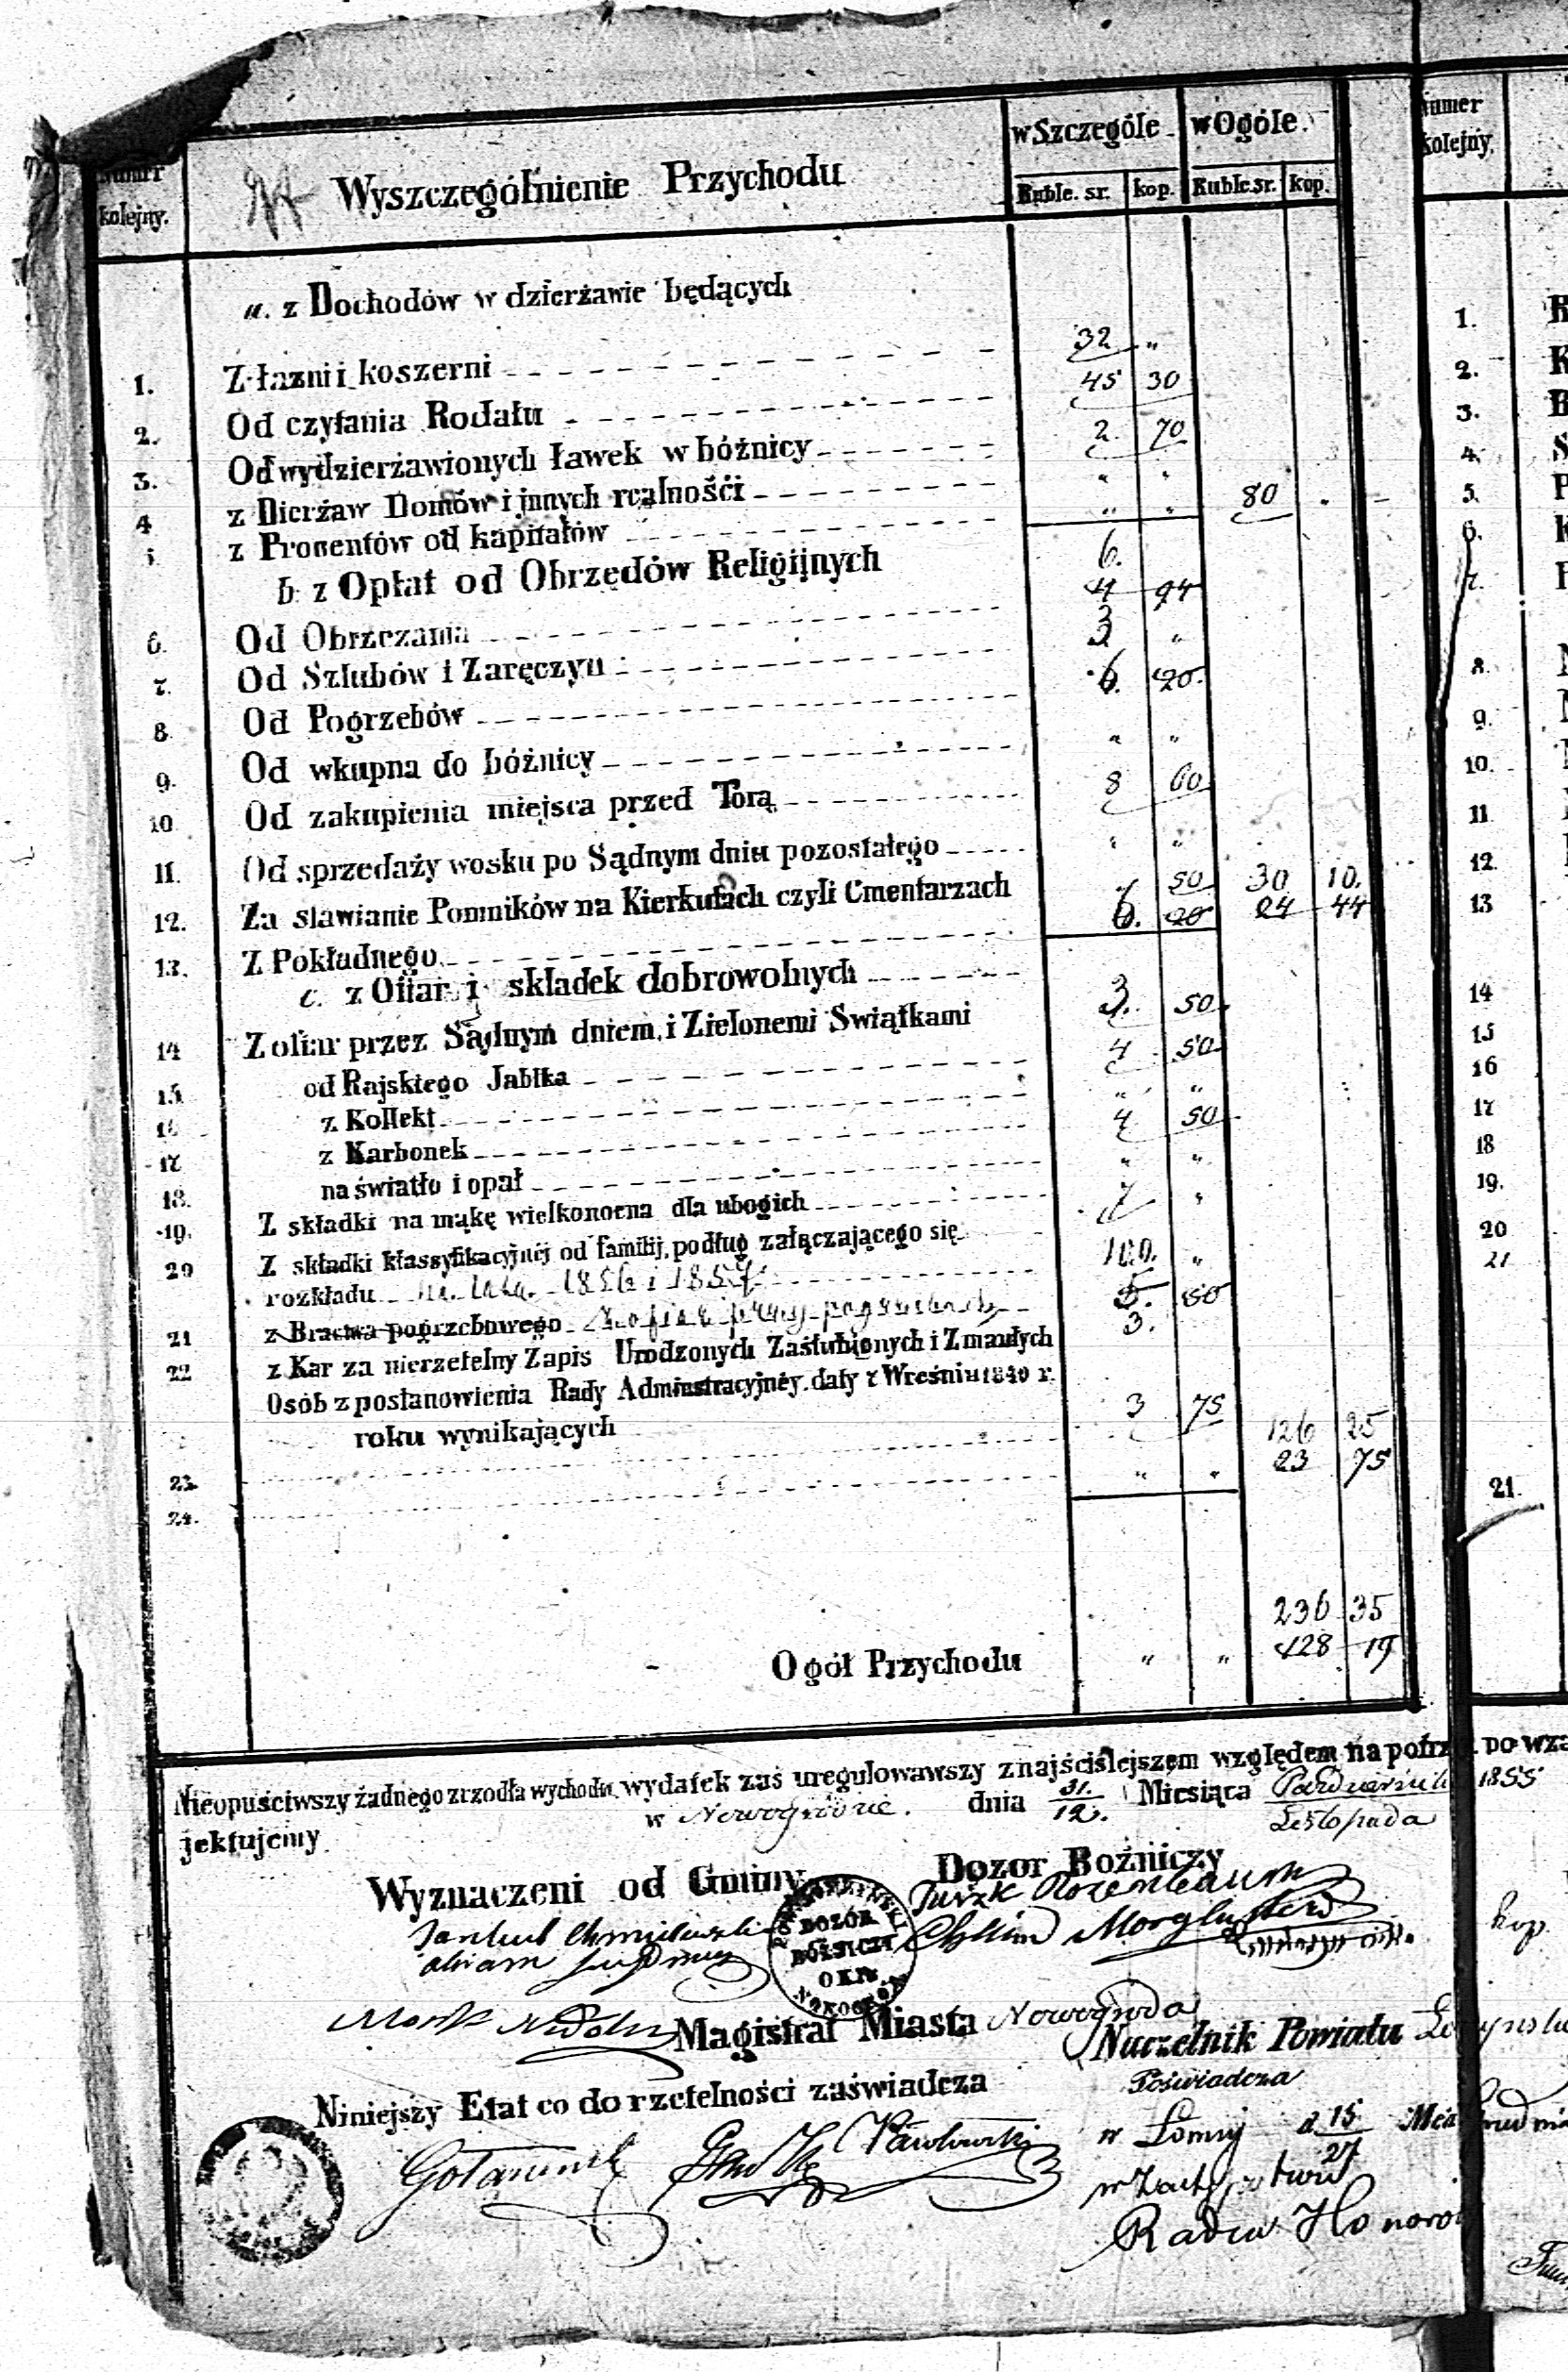 Numer kolejny.
Wyszczególnienie Przychodu
w Szczególe w Ogóle.
Ruble. sr. kop. Ruble. sr. kop.
Numer kolejny.
a. z Dochodów w dzierżawie będących
1. Z łazni i koszerni 32 "
2. Od czytania Rodału 45 30
3. Od wydzierżawionych ławek w bóżnicy 2. 70
4 z Dierżaw Domów i jnnych realnośći " "
5. z Procentów od kapitałów " " 80 "
b. z Opłat od Obrzędów Religijnych
6. Od Obrzezania 6. 4 94
7. Od Szlubów i Zaręczyn 3 "
8 Od Pogrzebów 6. 20.
9. Od wkupna do bóżnicy " "
10 Od zakupienia miejsca przed Torą 8 60
11. Od sprzedaży wosku po Sądnym dniu pozostałego " "
12. Za stawianie Pomników na Kierkutach czyli Cmentarzach 50 30 10.
13. Z Pokładnego 6. 20 24 44
c. z Ofiar i składek dobrowolnych
14 Z ofiar przez Sądnym dniem i Zielonemi Swiątkami 3. 50.
15 od Rajskiego Jabłka 4 50
16 z Kollekt " "
17 z Karbonek 4 50
18. na światło i opał " "
19. Z składki na mąkę wielkonocna dla ubogich 7 "
20 Z składki klassyfikacyjnéj od familij, podług załączającego się
rozkładu na lata 1856 i 1857 100. "
21 z Bractwa pogrzebowego z ofiar przy pogrzebach 5. 50
3.
22 z Kar za nierzetelny Zapis Urodzonych Zaślubionych i Zmarłych
Osób z postanowienia Rady Adminstracyjnéy. daty z Wreśniu 1840 r.
roku wynikających 3 75 126 25
23 75
23. " "
24.
236 35
Ogół Przychodu " " 428 19
Nieopuściwszy żadnego zrzodła wychodu, wydatek zaś uregulowawszy z najściślejszem względem na potrz po wza
jektujemy w Nowogrodzie. dnia 31./12. Miesiąca Pazdziernika 1855
Listopada
Wyznaczeni od Gminy
Dozor Bożniczy
Rozenbaum
Jankiel Chmielewski
DOZÓR
BÓŻNICZY
OKRę
Magistrat Miasta Nowogroda
Naczelnik Powiatu
Niniejszy Etat co do rzetelności zaświadcza
Poświadcza
w Łomzy d 15/27
Pawłowski
w Zastępstwie
Radca Honoro
1.
2.
3.
4.
5.
6.
7.
8.
9.
10.
11
12.
13
14
15
16
17
18
19.
20
21
21.
kop.